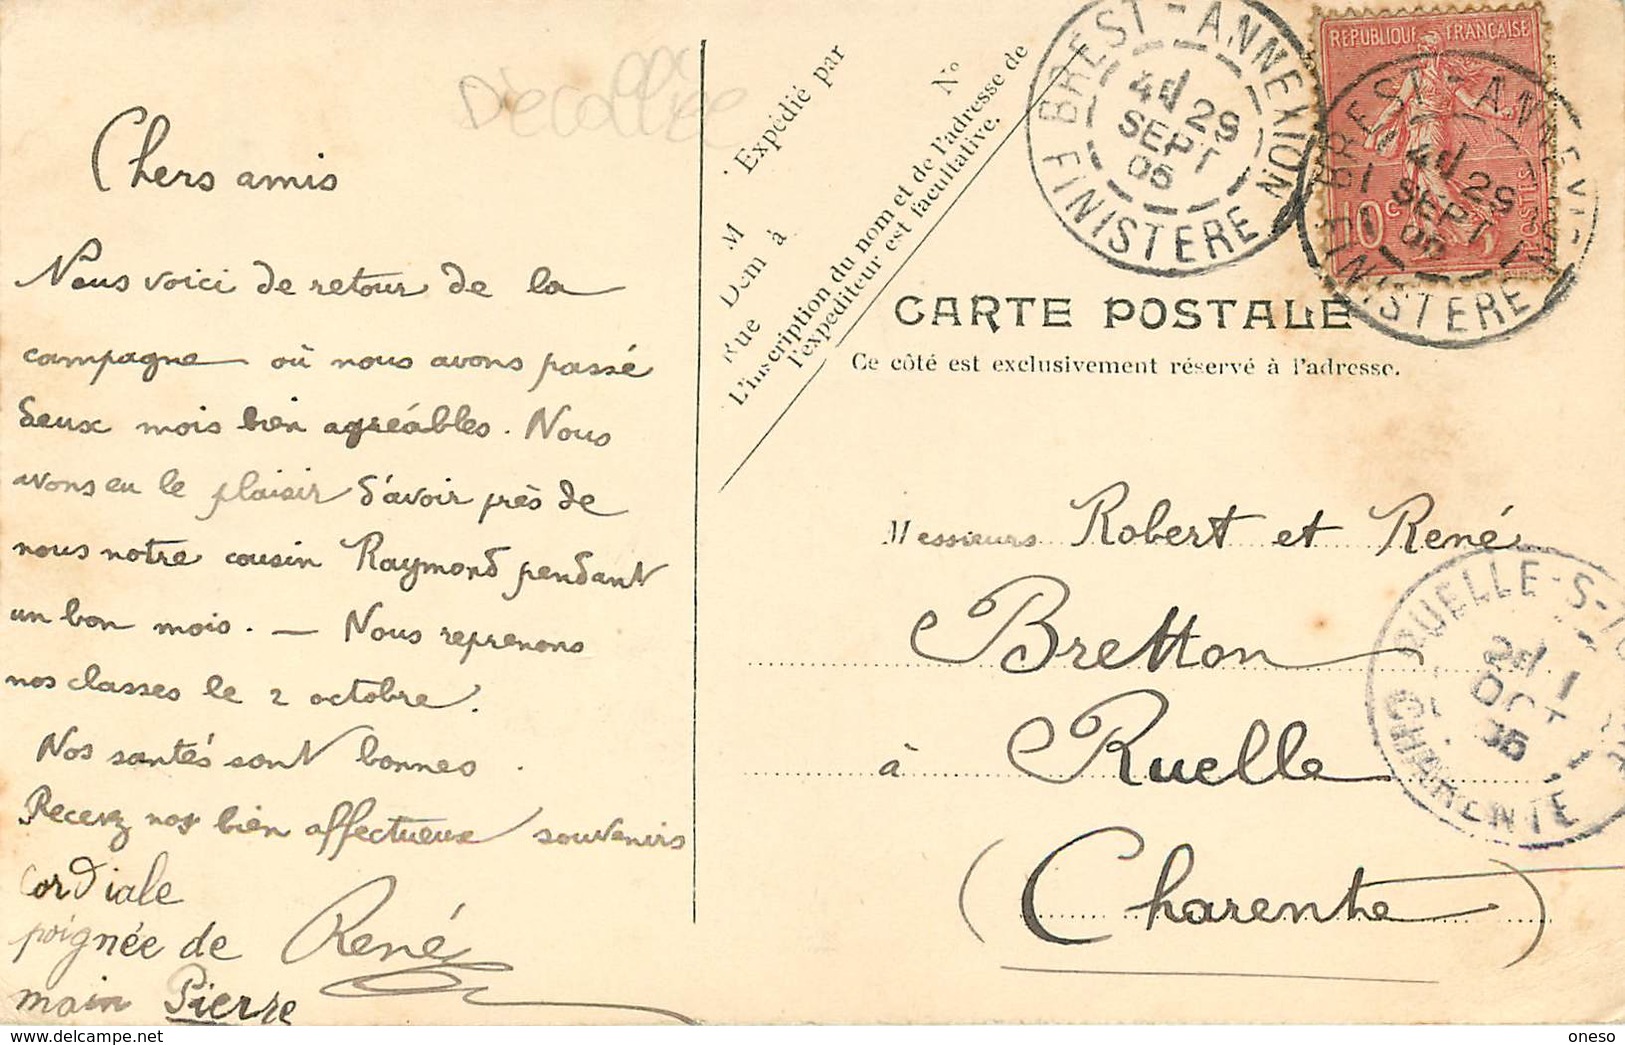 Décollée
Chers amis
Nous voici de retour de la
campagne où nous avons passé
deux mois bien agréables. Nous
avons eu le plaisir d'avoir près de
nous notre cousin Raymond pendant
un bon mois. — Nous reprenons
nos classes le 2 octobre.
Nos santés sont bonnes.
Recevez nos bien affectueux souvenirs
Cordiale
poignée de
main Pierre
René
M Expédié par
Dem à
Rue
N°
L'inscription du nom et de l'adresse de
l'expéditeur est facultative.
BREST-ANNEXION
4 29
SEPT
05
FINISTERE
REPUBLIQUE FRANÇAISE
10 c
POSTES
BREST-ANNEXION
4 29
SEPT
05
FINISTERE
CARTE POSTALE
Ce côté est exclusivement réservé à l'adresse.
Messieurs Robert et René
Bretton
à Ruelle
(Charente)
RUELLE-S-TO
1
OCT
05
CHARENTE
www.delcampe.net
oneso